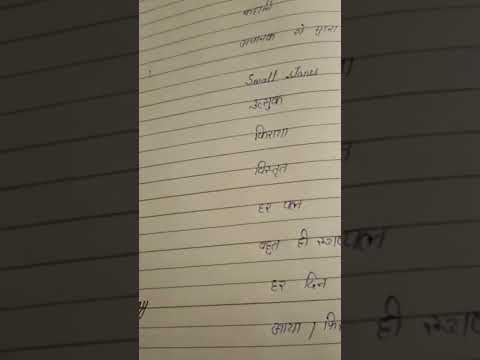 कहानी
अचानक से मारा
Small stories
उत्सुक
किराया
विस्तृत
हर पल
बहुत ही
हर दिन
आया / फिर ही